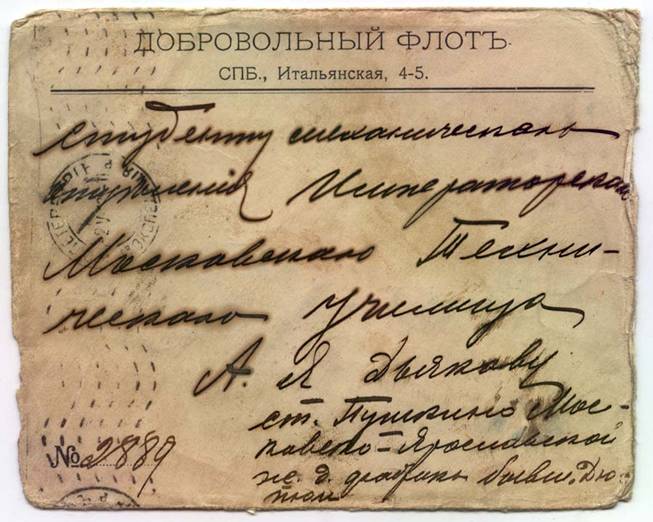 ДОБРОВОЛЬНЫЙ ФЛОТЪ.
СПБ., Итальянская, 4-5.
студенту механическаго
отделенія Императорскаго
Московскаго Техни-
ческаго Училища
А. Я Дьякову
ст. Пушкино Мос-
ковско-Ярославской
ж. д.
№ 2889